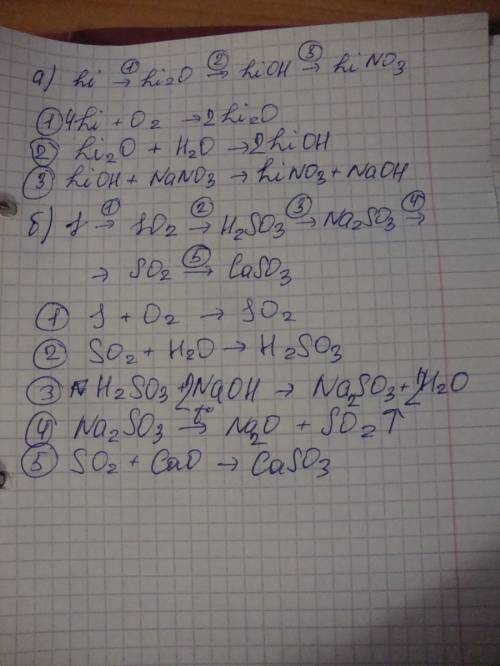 а) Li ①→ Li₂O ②→ LiOH ③→ LiNO₃
① 4Li + O₂ → 2Li₂O
② Li₂O + H₂O → 2LiOH
③ LiOH + NaNO₃ → LiNO₃ + NaOH
б) S ①→ SO₂ ②→ H₂SO₃ ③→ Na₂SO₃ ④→
→ SO₂ ⑤→ CaSO₃
① S + O₂ → SO₂
② SO₂ + H₂O → H₂SO₃
③ H₂SO₃ + 2NaOH → Na₂SO₃ + 2H₂O
④ Na₂SO₃ t°→ Na₂O + SO₂↑
⑤ SO₂ + CaO → CaSO₃